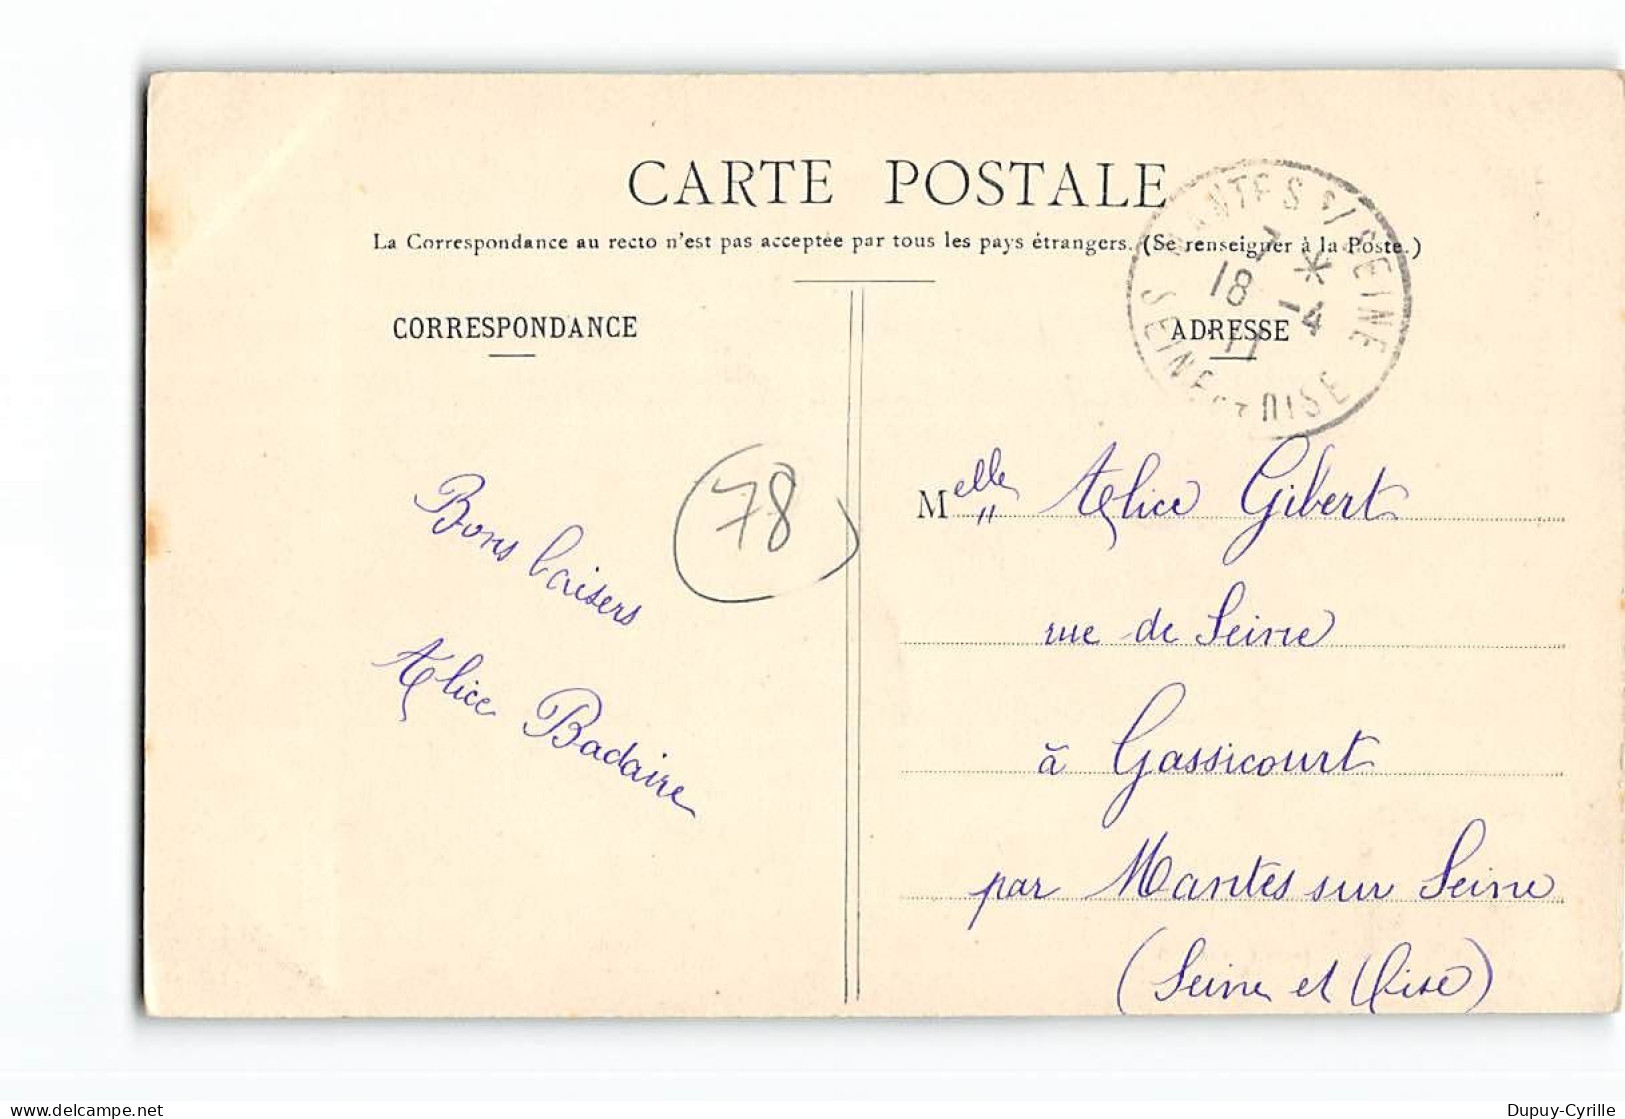 CARTE POSTALE
La Correspondance au recto n'est pas acceptée par tous les pays étrangers. (Se renseigner à la Poste.)
CORRESPONDANCE
ADRESSE
MANTES S/ SEINE
18 -4
11
SEINE ET OISE
78
Bons baisers
Alice Badaire
Melle Alice Gibert
rue de Seine
à Gassicourt
par Mantes sur Seine
(Seine et Oise)
delcampe.net
Dupuy-Cyrille